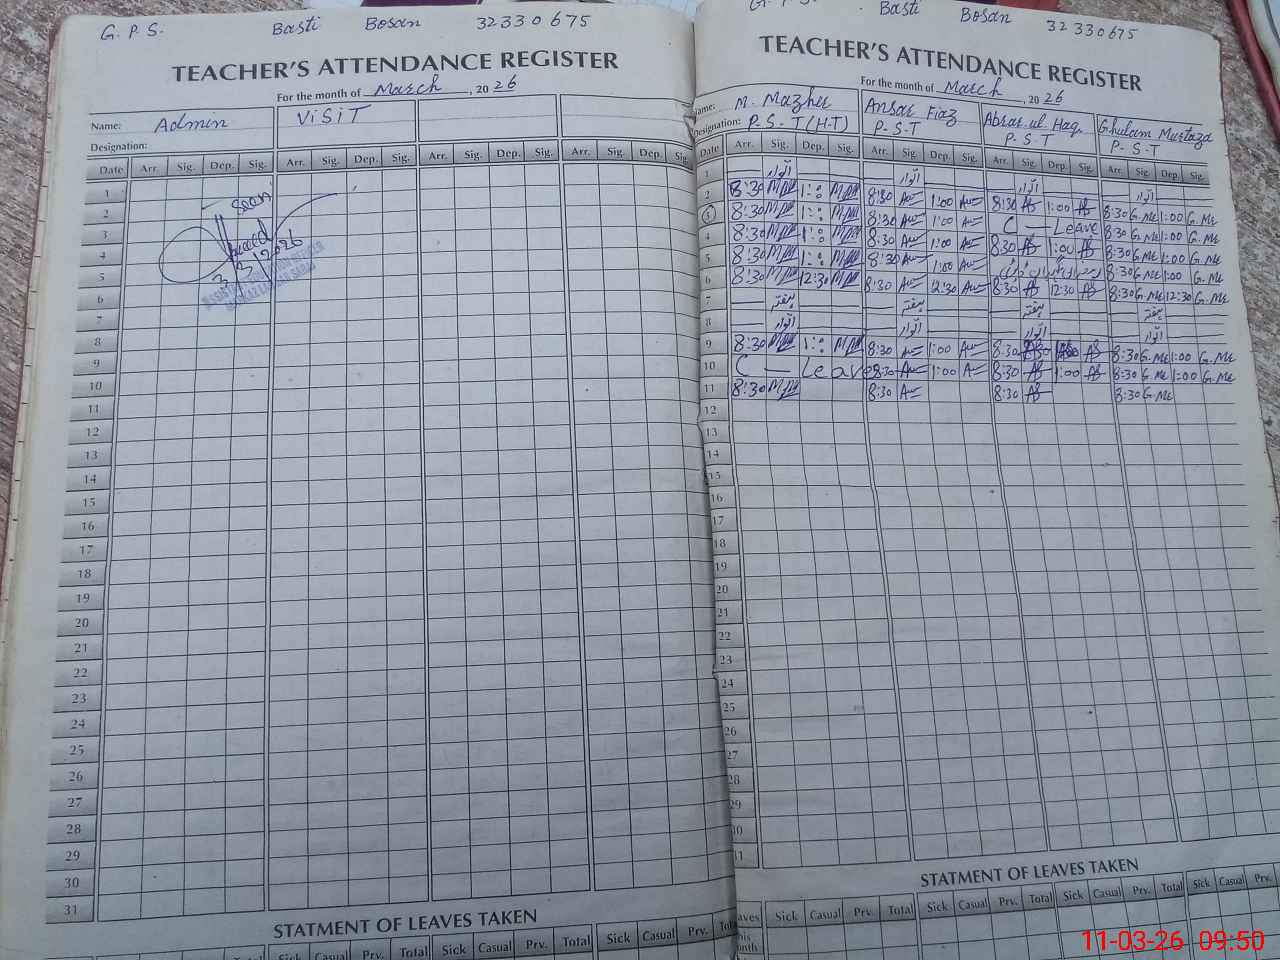 G. P. S. Basti Bosan 32330675
TEACHER'S ATTENDANCE REGISTER
For the month of March, 20 26
Name: Admin ViSiT
Designation:
Date Arr. Sig. Dep. Sig. Arr. Sig. Dep. Sig. Arr. Sig. Dep. Sig. Arr. Sig. Dep. Sig.
1
2
3
4
5
6
7
8
9
10
11
12
13
14
15
16
17
18
19
20
21
22
23
24
25
26
27
28
29
30
31
Seen
STATMENT OF LEAVES TAKEN
Sick Casual Prv. Total Sick Casual Prv. Total
G. P. S. Basti Bosan 32330675
TEACHER'S ATTENDANCE REGISTER
For the month of March, 20 26
Name: M. Mazher Ansar Fiaz Abrar.ul.Haq Ghulam Murtaza
Designation: P-S-T (H-T) P-S-T P-S-T P-S-T
Date Arr. Sig. Dep. Sig. Arr. Sig. Dep. Sig. Arr. Sig. Dep. Sig. Arr. Sig. Dep. Sig.
1 اتوار اتوار اتوار اتوار
2 8:30 1:00 8:30 1:00 8:30 1:00 8:30 G.Mr 1:00 G.Mr
3 8:30 1:00 8:30 1:00 C — Leave 8:30 G.Mr 1:00 G.Mr
4 8:30 1:00 8:30 1:00 8:30 1:00 8:30 G.Mr 1:00 G.Mr
5 8:30 1:00 8:30 1:00 8:30 G.Mr 1:00 G.Mr
6 8:30 12:30 8:30 12:30 8:30 12:30 8:30 G.Mr 12:30 G.Mr
7 ہفتہ ہفتہ ہفتہ ہفتہ
8 اتوار اتوار اتوار اتوار
9 8:30 1:00 8:30 1:00 8:30 8:30 G.Mr 1:00 G.Mr
10 C — Leave 8:30 1:00 8:30 1:00 8:30 G.Mr 1:00 G.Mr
11 8:30 8:30 8:30 8:30 G.Mr
12
13
14
15
16
17
18
19
20
21
22
23
24
25
26
27
28
29
30
31
STATMENT OF LEAVES TAKEN
Sick Casual Prv. Total Sick Casual Prv. Total Sick Casual Prv.
11-03-26 09:50